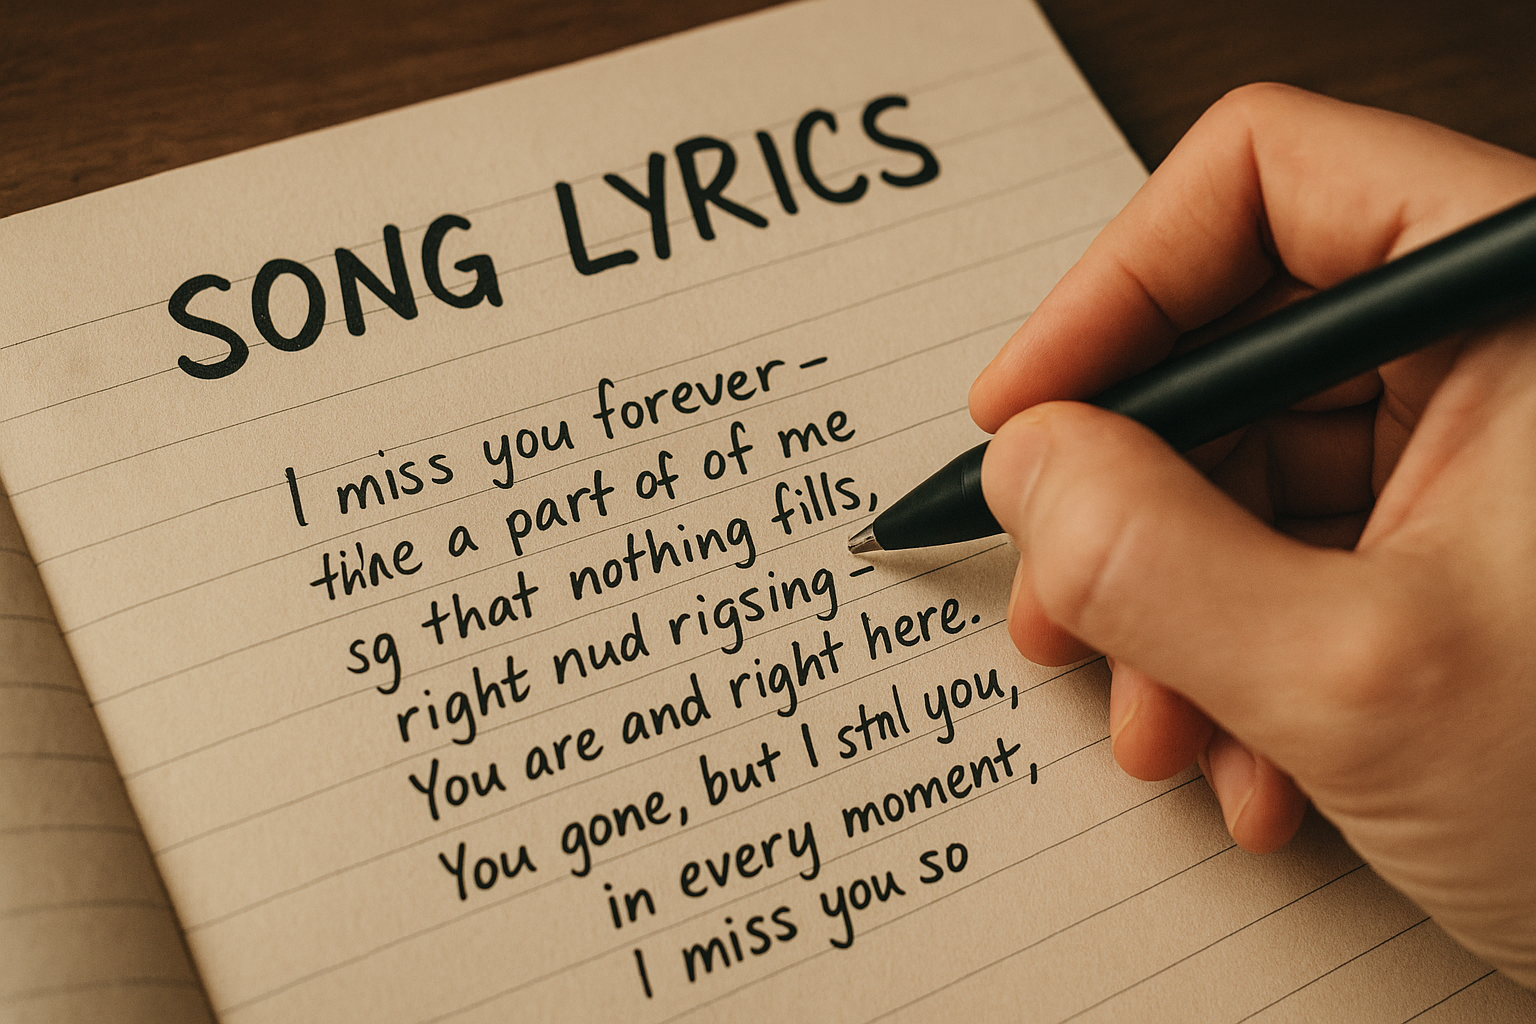 SONG LYRICS
I miss you forever –
a part of of me
sg that nothing fills,
right nud rigsing –
You are and right here.
You gone, but I stnl you,
in every moment,
I miss you so